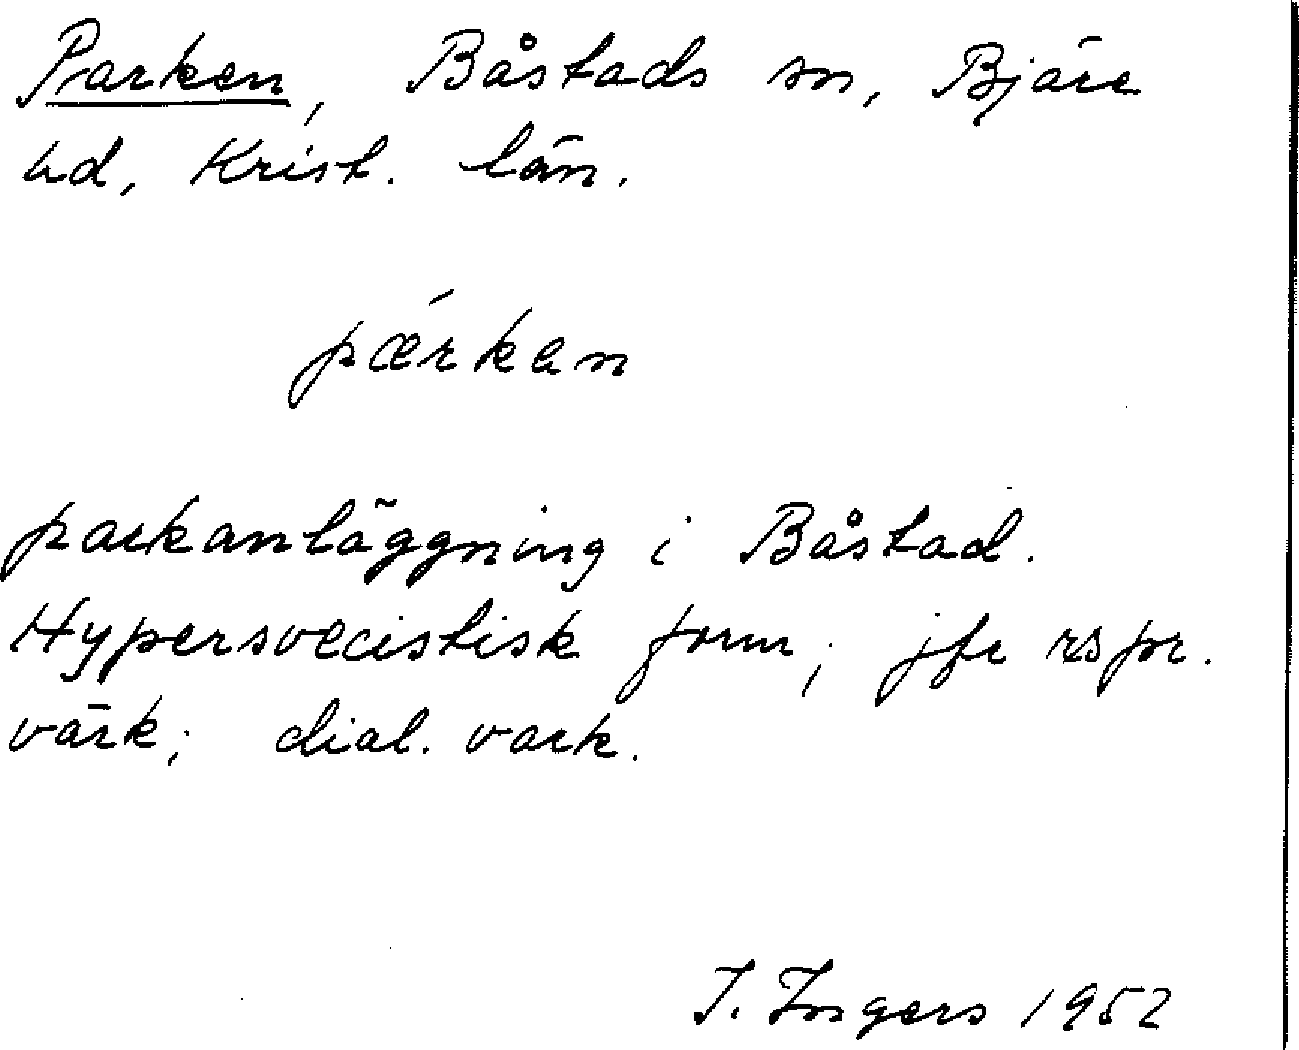 Parken, Båstads sn, Bjäre
hd, Krist. län.
pǽrkan
parkanläggning i Båstad.
Hypersvecistisk form; jfr rspr.
värk; dial. vark.
I. Ingers 1952